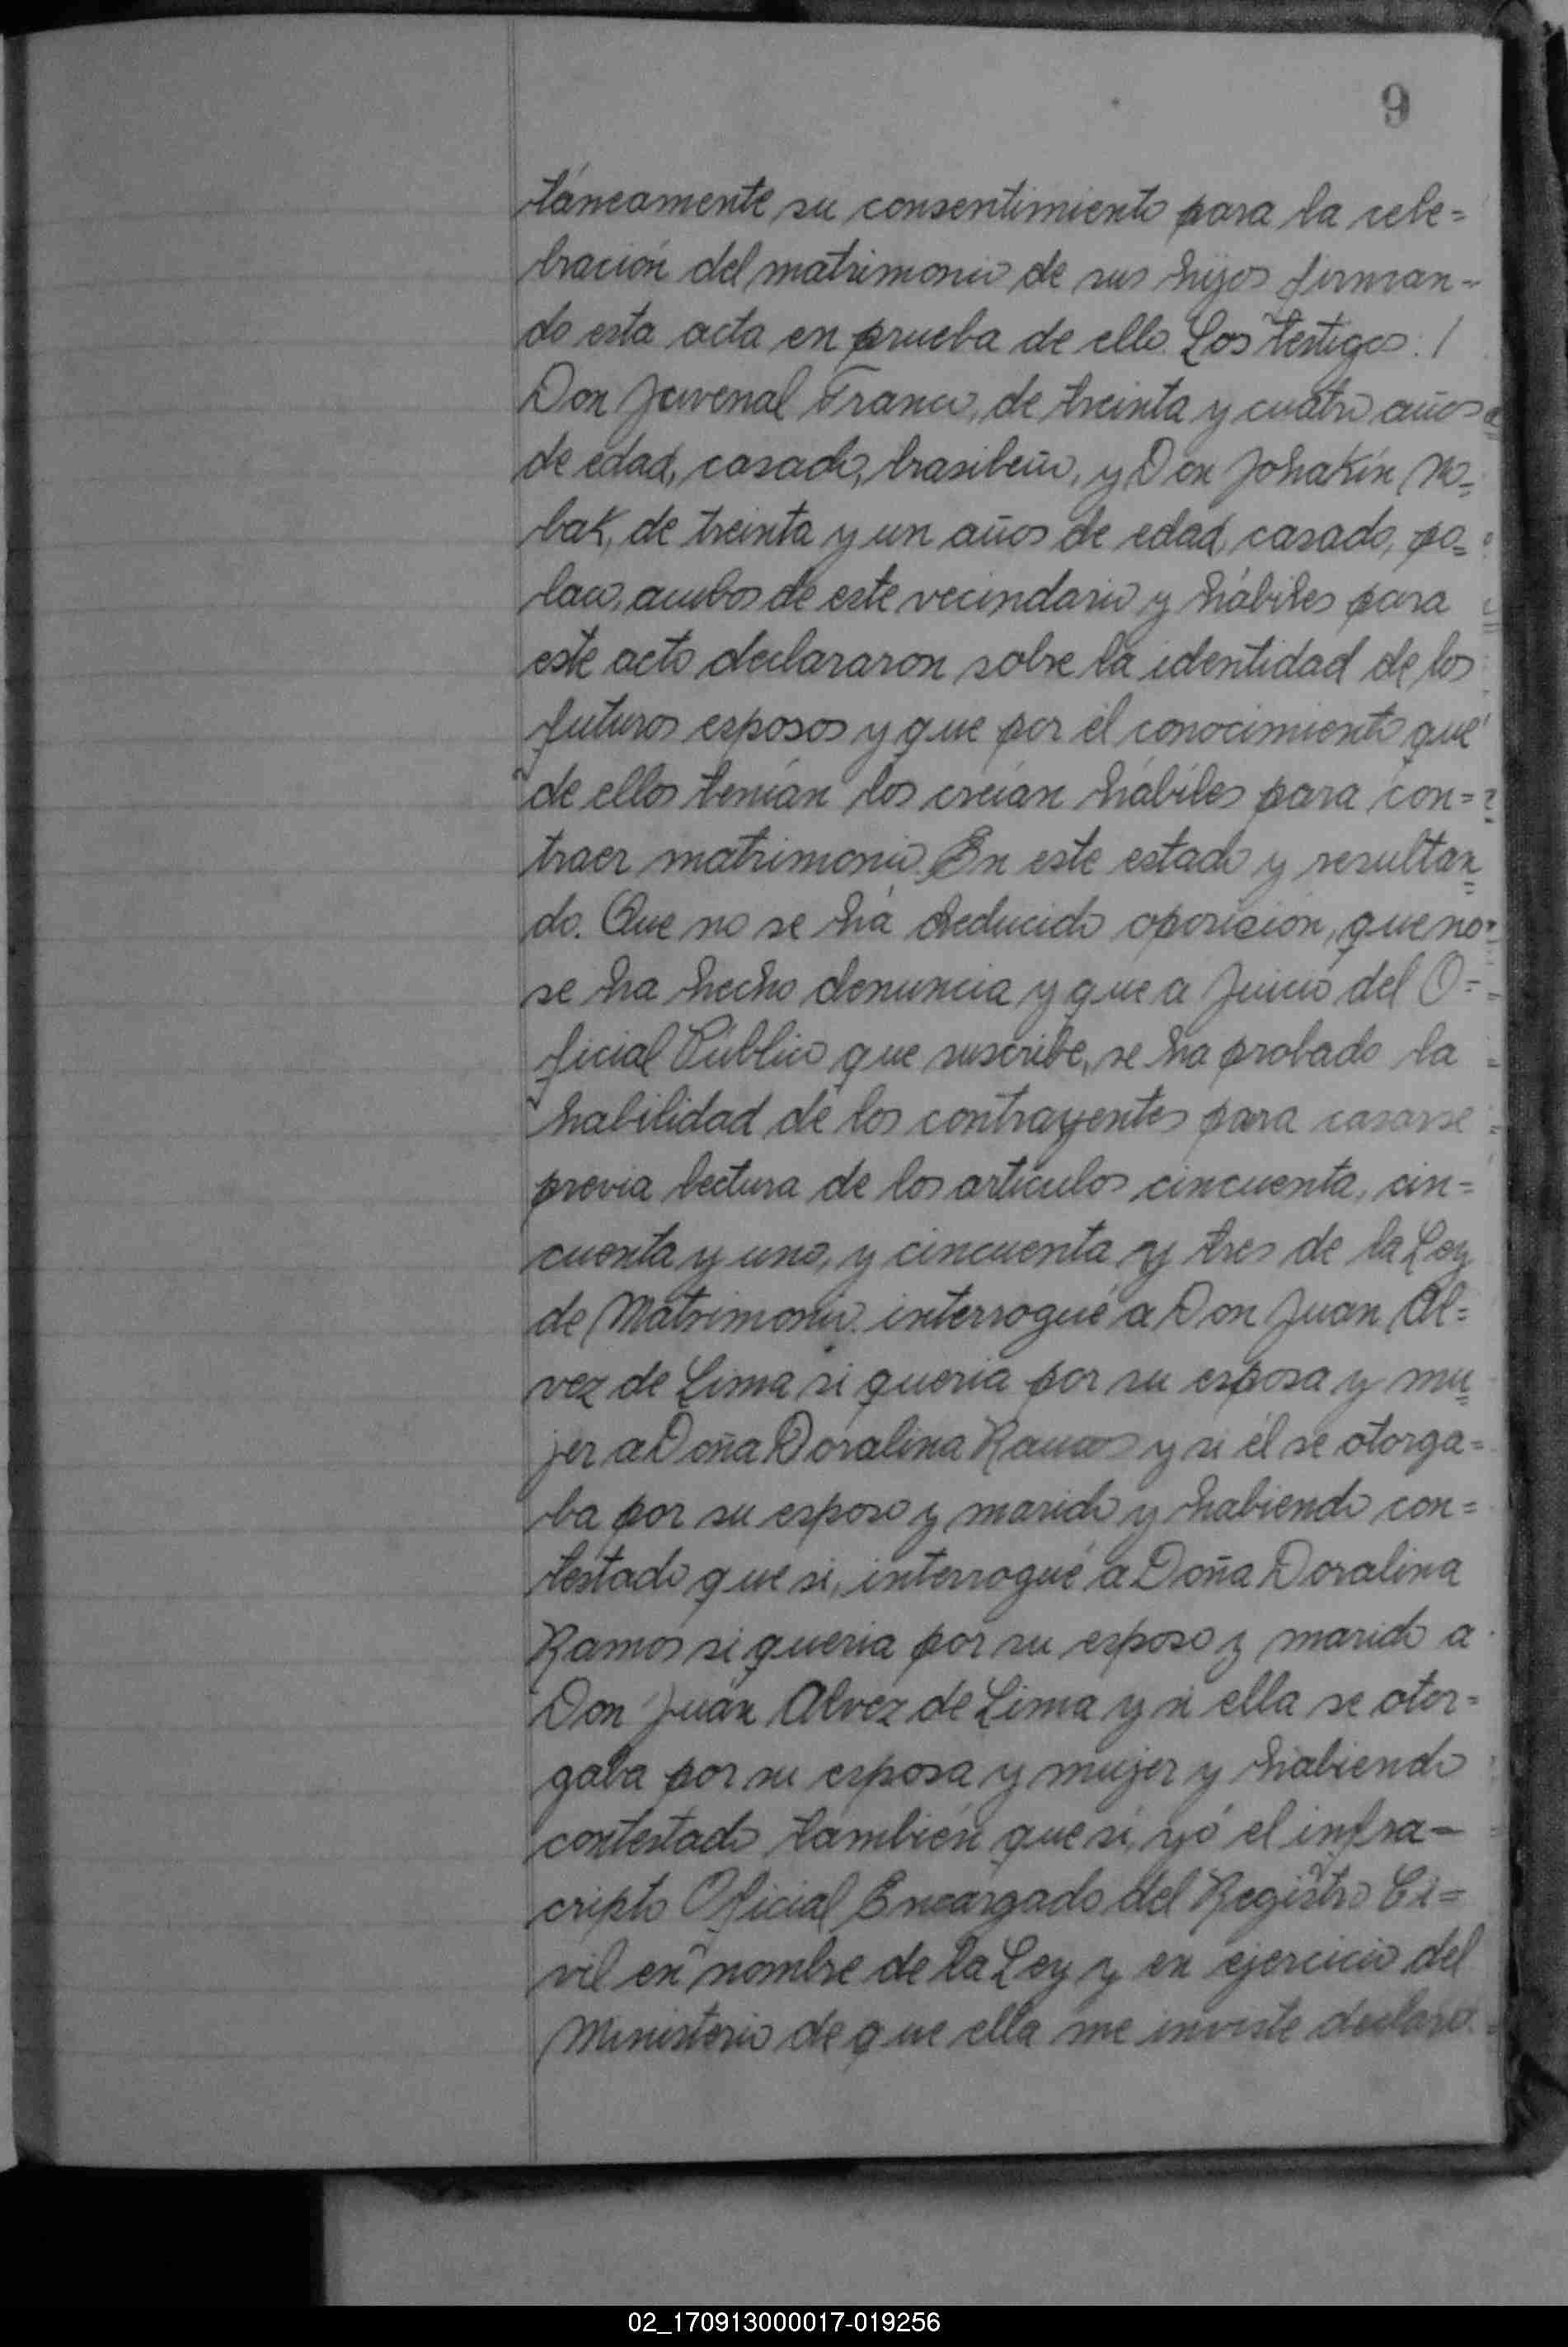 9
táneamente su consentimiento para la cele=
bración del matrimonio de sus hijos firman-
do esta acta en prueba de ello. Los testigos: /
Don Juvenal Franco, de treinta y cuatro años
de edad, casado, brasileño, y Don Johakín No=
bak, de treinta y un años de edad, casado, po=
laco, ambos de este vecindario y hábiles para
este acto declararon sobre la identidad de los
futuros esposos y que por el conocimiento que
de ellos tenían los creían hábiles para con=
traer matrimonio. En este estado y resultan=
do. Que no se há deducido oposición, que no
se ha hecho denuncia y que a Juicio del O=
ficial Público que suscribe, se ha probado la
habilidad de los contrayentes para casarse
previa lectura de los artículos cincuenta, cin=
cuenta y uno, y cincuenta y tres de la Ley
de Matrimonio. interrogué a Don Juan Al=
vez de Lima si queria por su esposa y mu=
jer a Doña Doralina Ramos y si él se otorga=
ba por su esposo y marido y habiendo con=
testado que si, interrogué a Doña Doralina
Ramos si queria por su esposo y marido a
Don Juan Alvez de Lima y si ella se otor=
gaba por su esposa y mujer y habiendo
contestado también que si, yó el infra=
cripto Oficial Encargado del Registro Ci=
vil en nombre de la Ley y en ejercicio del
Ministerio de que ella me inviste declaro.
02_170913000017-019256